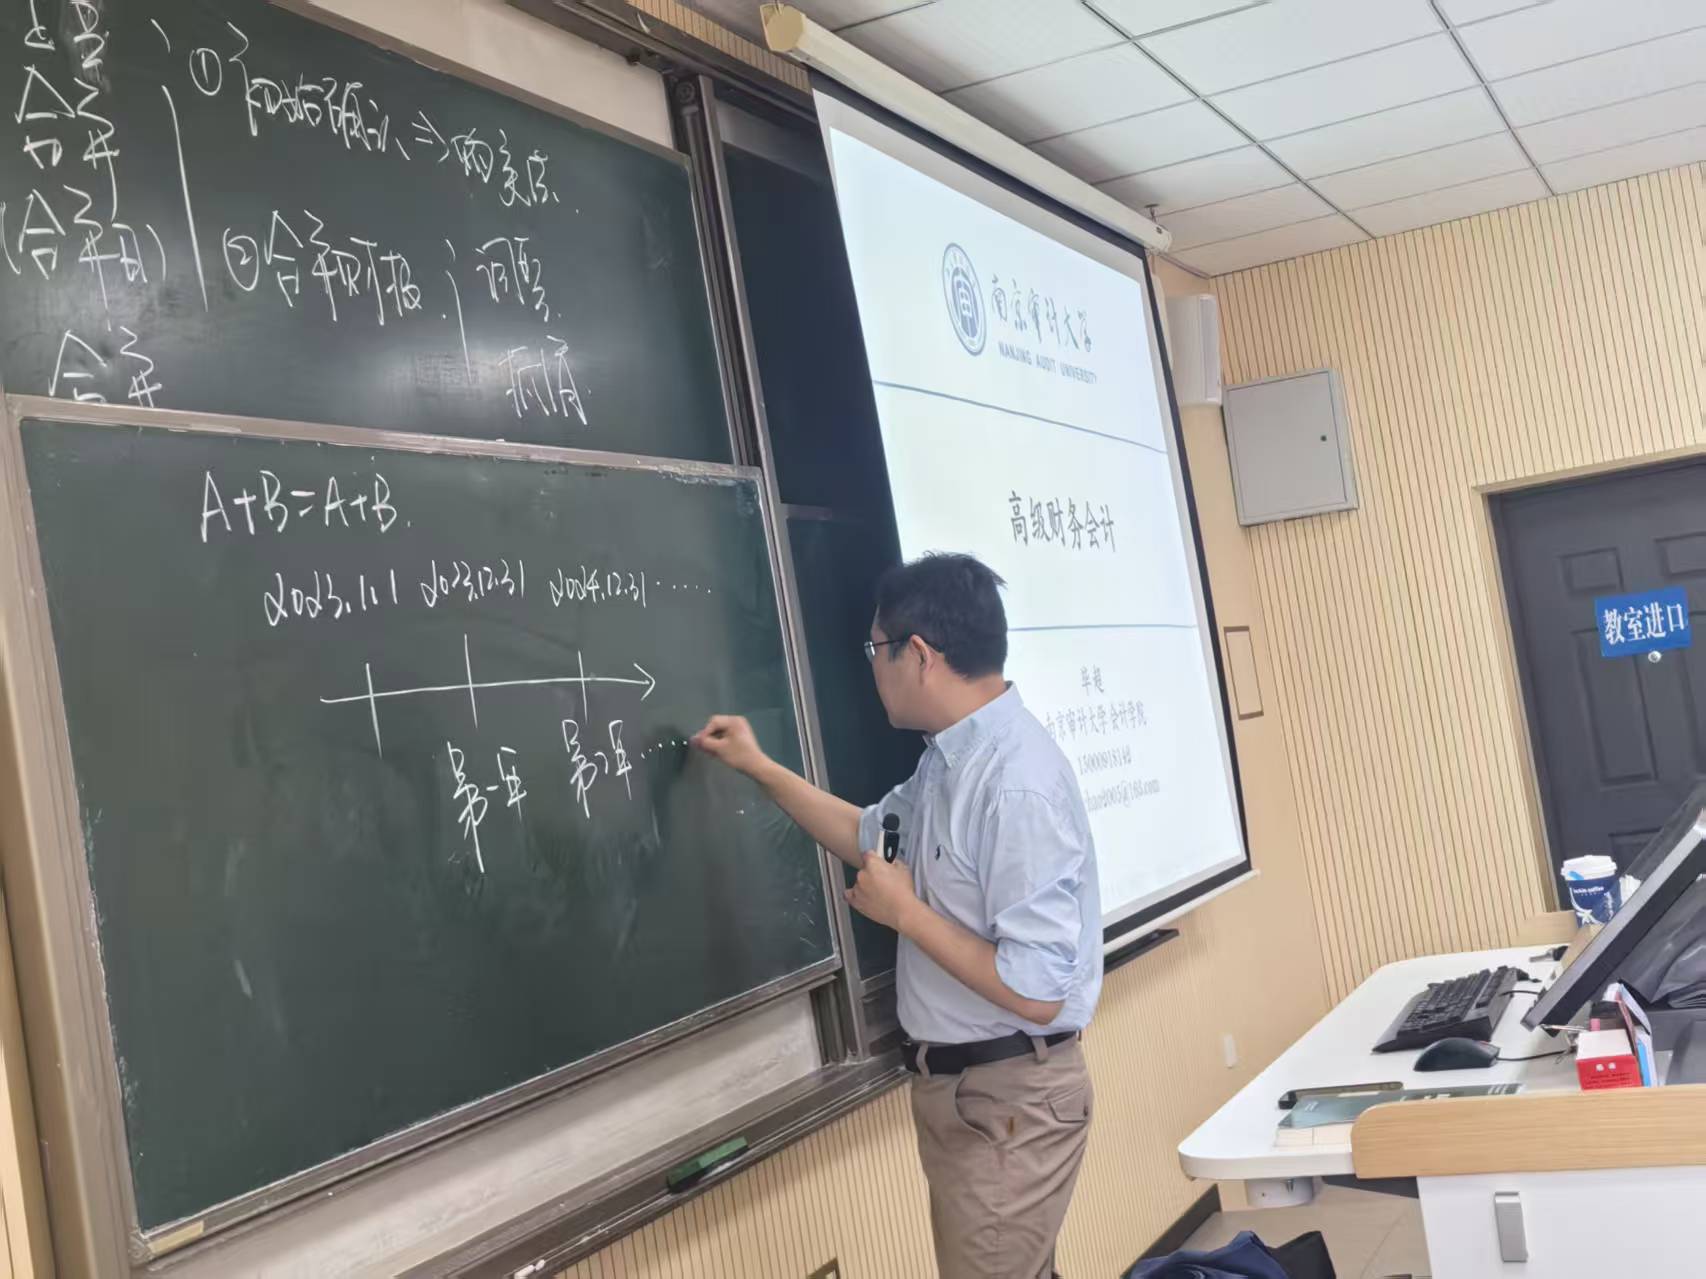 企业
合并
(合并日)
合并
① 初始确认 ⇒ 购买法.
② 合并财报. 调整.
抵消.
A+B=A+B.
2023.1.1 2023.12.31 2024.12.31 ······
第一年 第2年 ······
南京审计大学
NANJING AUDIT UNIVERSITY
高级财务会计
毕超
南京审计大学 会计学院
教室进口
luckin coffee